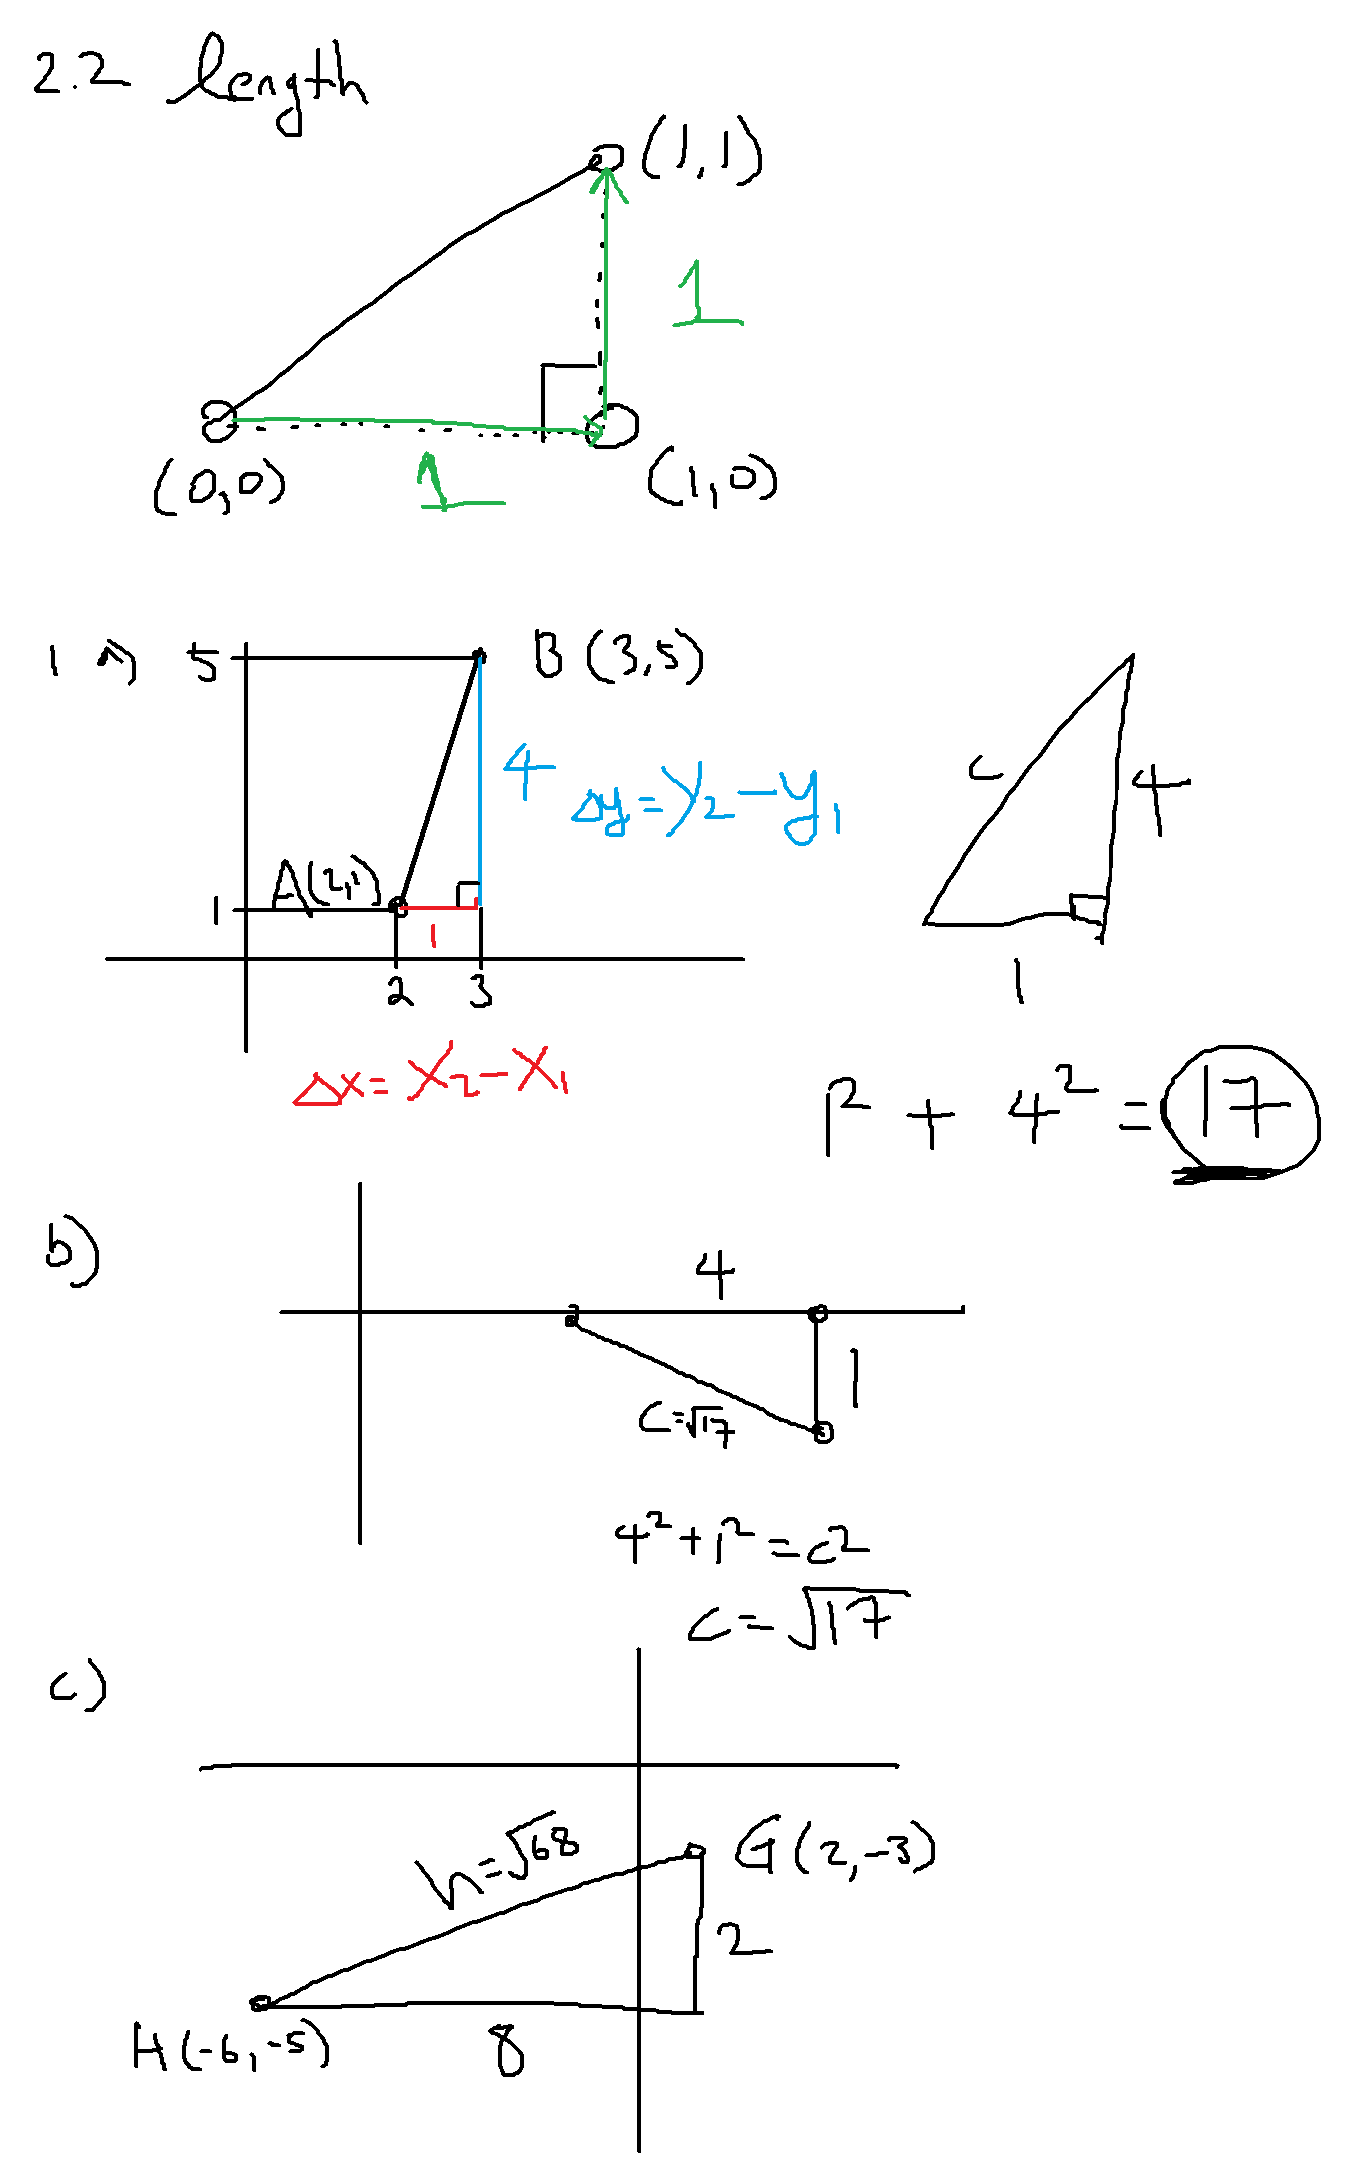 2.2 length
(1,1)
1
(0,0)
1
(1,0)
1 a)
5
B (3,5)
4
Δy = y₂ - y₁
c
4
A(2,1)
1
1
2
3
1
Δx = x₂ - x₁
1² + 4² = 17
b)
4
1
c=√17
4² + 1² = c²
c = √17
c)
h=√68
G(2,-3)
2
H(-6,-5)
8